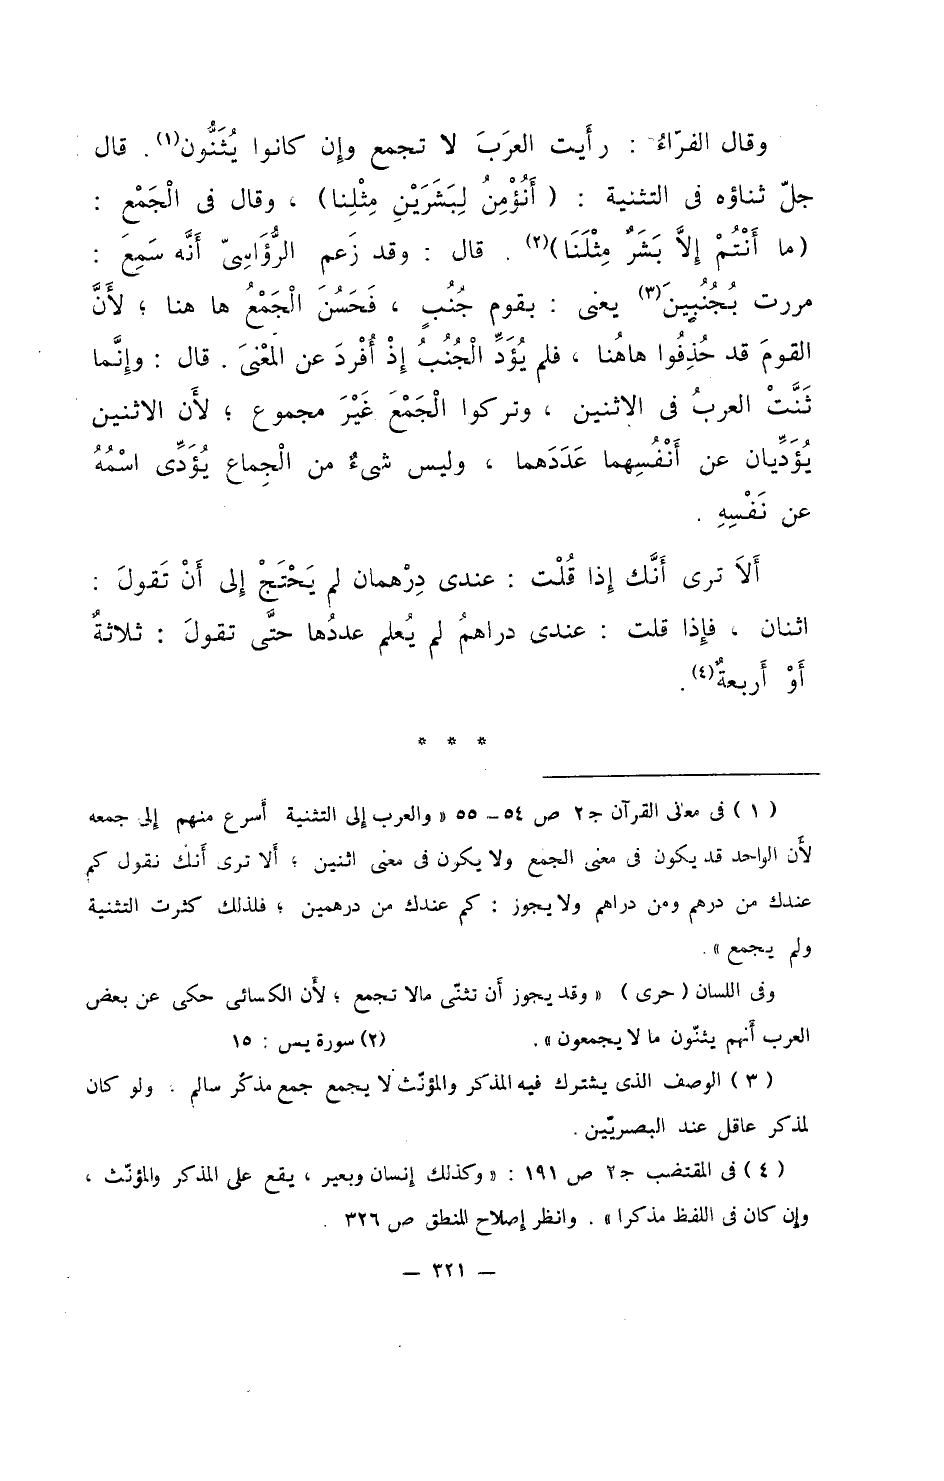 وقال الفرّاءُ : رأَيت العرَبَ لا تجمع وإن كانوا يُثَنُّون(١). قال
جلّ ثناؤه فى التثنية : ( أَنُؤْمِنُ لِبَشَرَيْنِ مِثْلِنا) ، وقال فى الْجَمْع :
(ما أَنْتُمْ إِلاَّ بَشَرٌ مِثْلُنَا)(٢) . قال : وقد زَعم الرُّؤَاسِىّ أَنَّه سَمِعَ :
مررت بُجُنُبِينَ(٣) يعنى : بقوم جُنُبٍ ، فَحَسُنَ الْجَمْعُ ها هنا ؛ لأَنَّ
القومَ قد حُذِفُوا هاهُنا ، فلم يُؤَدِّ الْجُنُبُ إِذْ أُفْرِدَ عن المَعْنىَ . قال : وإِنَّما
ثَنَّتْ العربُ فى الاثنين ، وتركوا الْجَمْعَ غَيْرَ مجموع ؛ لأَن الاثنين
يُؤَدِّيان عن أَنْفُسِهِما عَدَدَهما ، وليس شىءٌ من الْجِماع يُؤَدِّى اسْمُهُ
عن نَفْسِهِ .
أَلاَ ترى أَنَّك إِذا قُلْت : عندى دِرْهمان لم يَحْتَجْ إِلى أَنْ تَقولَ :
اثنان ، فإِذا قلت : عندى دراهمُ لم يُعلم عددُها حتَّى تقولَ : ثلاثةٌ
أَوْ أَربعةٌ(٤).
* * *
( ١ ) فى معانى القرآن ج٢ ص ٥٤ ــ ٥٥ « والعرب إلى التثنية أسرع منهم إلى جمعه
لأن الواحد قد يكون فى معنى الجمع ولا يكون فى معنى اثنين ؛ ألا ترى أنك نقول كم
عندك من درهم ومن دراهم ولا يجوز : كم عندك من درهمين ؛ فلذلك كثرت التثنية
ولم يجمع ».
وفى اللسان ( حرى ) « وقد يجوز أن تثنّى مالا تجمع ؛ لأن الكسائى حكى عن بعض
العرب أنهم يثنّون ما لا يجمعون ». (٢) سورة يس : ١٥
( ٣ ) الوصف الذى يشترك فيه المذكر والمؤنّث لا يجمع جمع مذكّر سالم . ولو كان
لمذكر عاقل عند البصريّين .
( ٤ ) فى المقتضب ج٢ ص ١٩١ : « وكذلك إنسان وبعير ، يقع على المذكر والمؤنّث ،
وإن كان فى اللفظ مذكرا » . وانظر إصلاح المنطق ص ٣٢٦ .
ــ ٣٢١ ــ